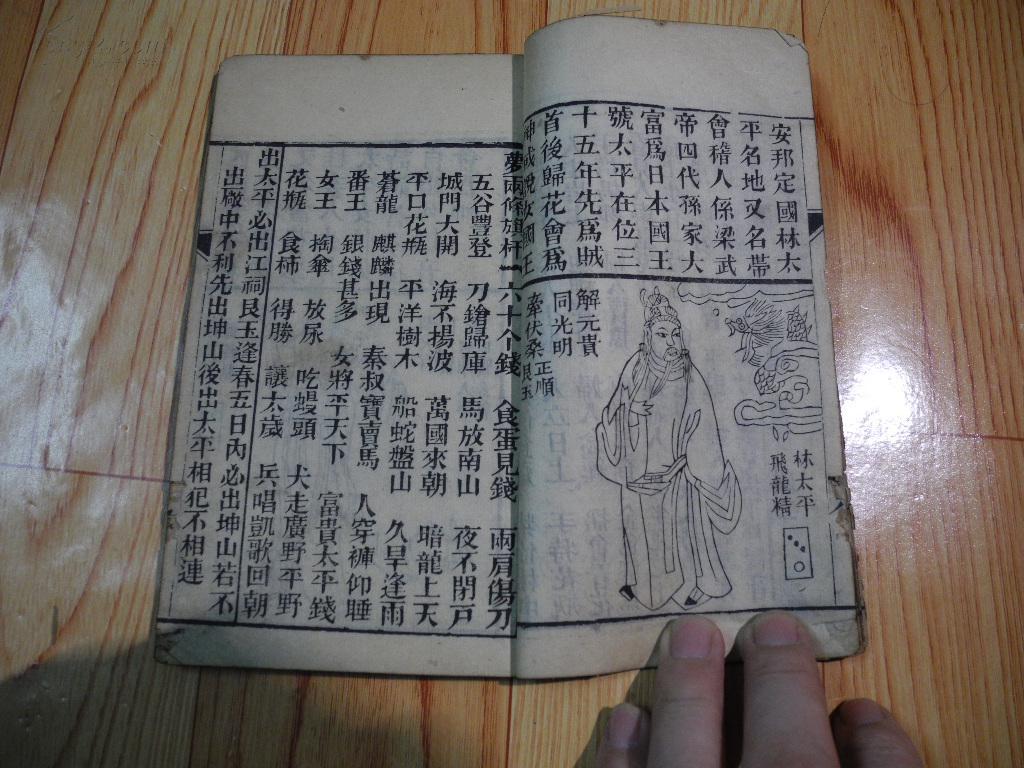 安邦定國林太
平名地又名帶
會稽人係梁武
帝四代孫家大
富為日本國王
號太平在位三
十五年先為賊
首後歸花會為
林太平
飛龍精
解元貴
同光明
正順
夢兩條旗杆 一六十个錢 食蛋見錢 兩肩傷刀
五谷豐登 刀鎗歸庫 馬放南山 夜不閉戸
城門大開 海不揚波 萬國來朝 暗龍上天
平口花瓶 平洋樹木 船蛇盤山 久旱逢雨
蒼龍 麒麟出現 秦叔寶賣馬 人穿褲仰睡
番王 銀錢甚多 女將平天下 富貴太平錢
女王 掏傘 放尿 吃蝗頭 犬走廣野平野
花瓶 食柿 得勝 讓太歲 兵唱凱歌回朝
出太平必出江祠艮玉逢春五日內必出坤山若不
出廠中不利先出坤山後出太平相犯不相連